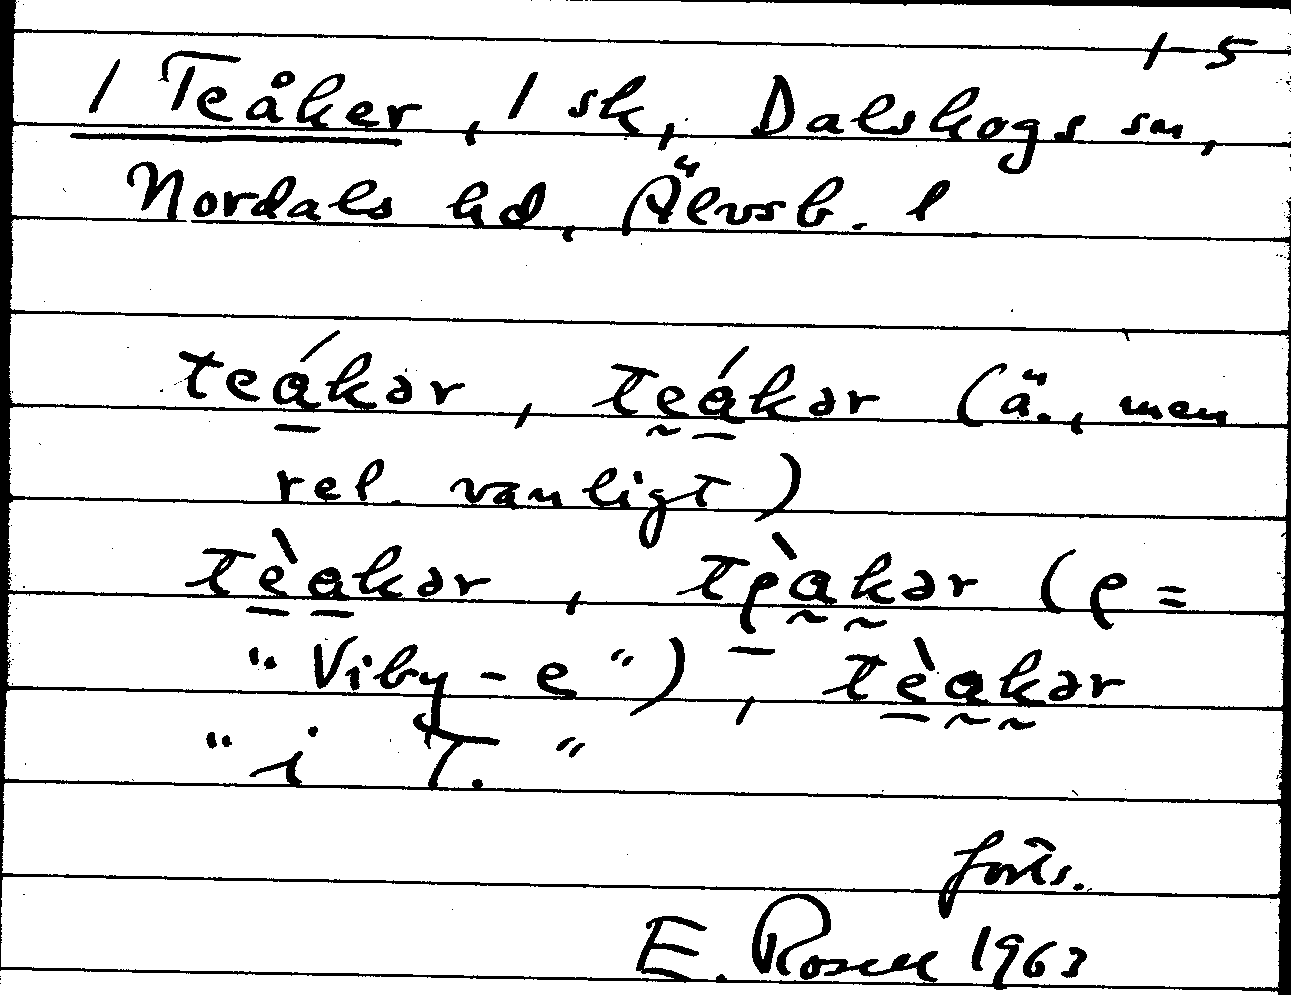 1-5
1 Teåker, 1 sk, Dalskogs sn,
Nordals hd, Älvsb. l
teákər, teákər (ä., men
rel. vanligt)
tèakər, tęàkər (ę =
"Viby-e"), tèakər
"i T."
forts.
E. Rosell 1963